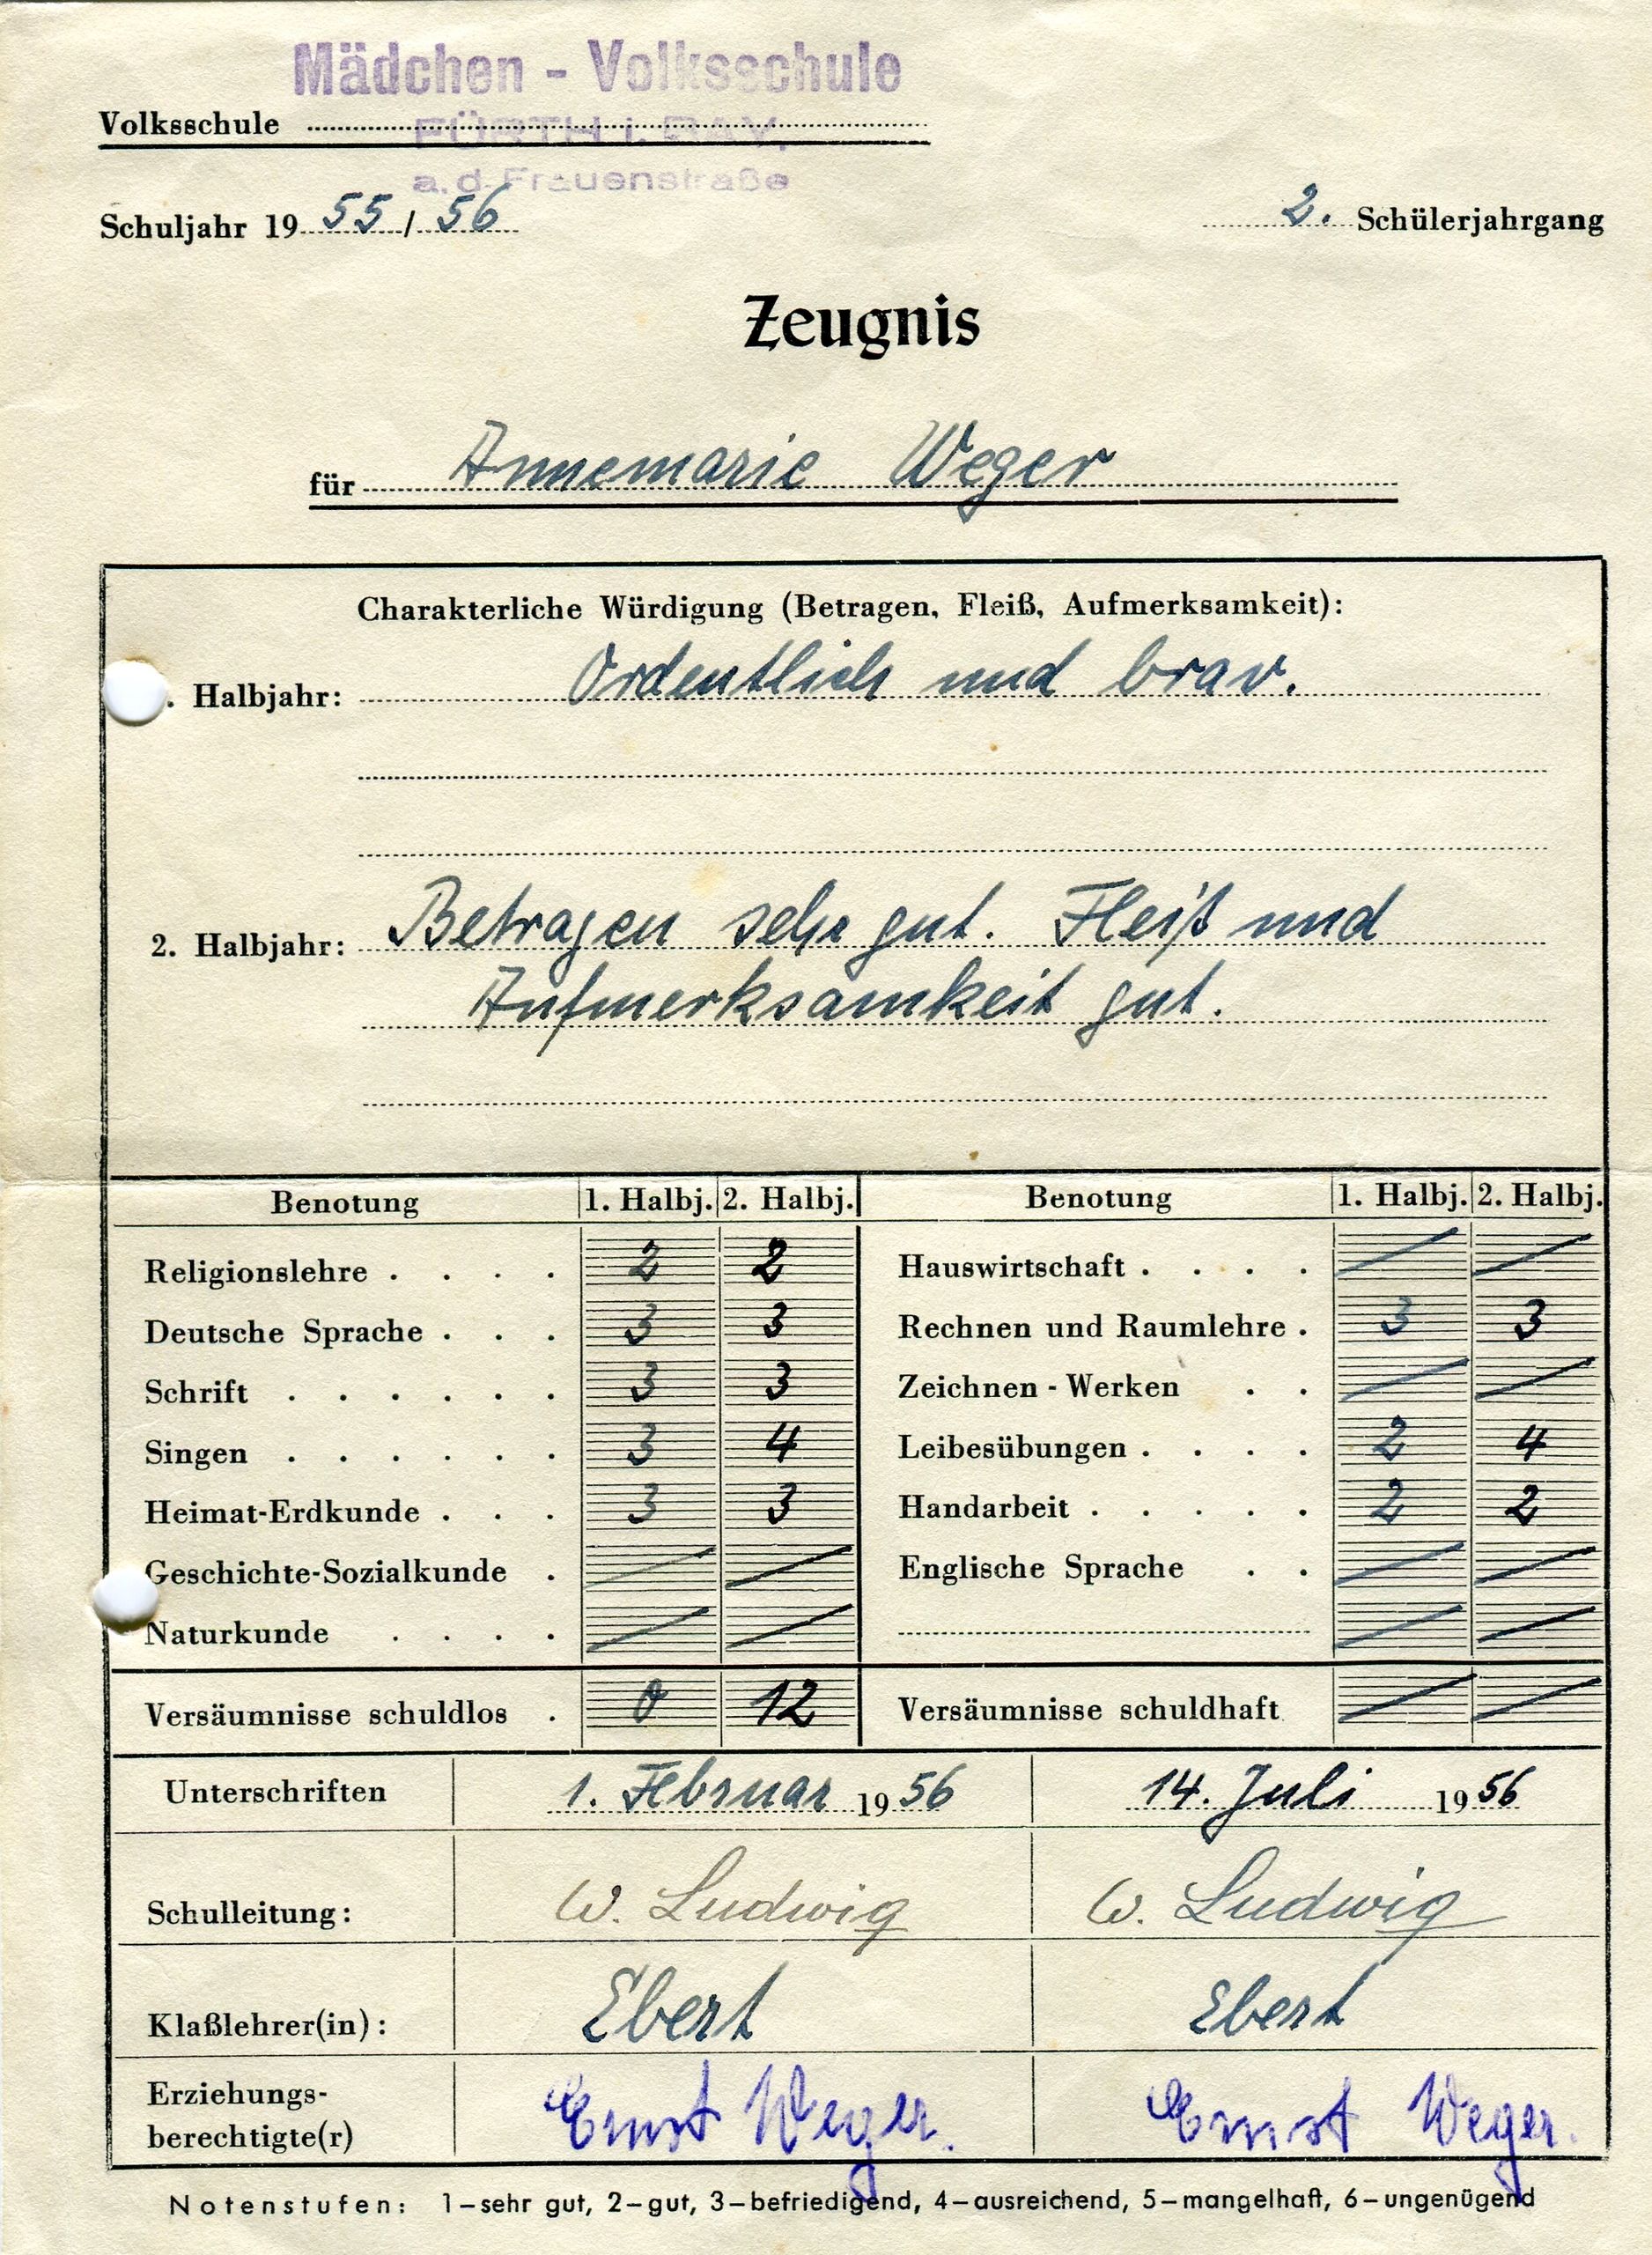 Mädchen - Volksschule
Volksschule
FÜRTH i. BAY.
a. d. Frauenstraße
Schuljahr 19 55 / 56 2. Schülerjahrgang
Zeugnis
für Annemarie Weger
Charakterliche Würdigung (Betragen, Fleiß, Aufmerksamkeit):
. Halbjahr: Ordentlich und brav.
2. Halbjahr: Betragen sehr gut. Fleiß und
Aufmerksamkeit gut.
Benotung 1. Halbj. 2. Halbj. Benotung 1. Halbj. 2. Halbj.
Religionslehre . . . . 2 2 Hauswirtschaft . . . . / /
Deutsche Sprache . . . 3 3 Rechnen und Raumlehre . 3 3
Schrift . . . . . . 3 3 Zeichnen - Werken . . / /
Singen . . . . . . 3 4 Leibesübungen . . . . 2 4
Heimat-Erdkunde . . . 3 3 Handarbeit . . . . . 2 2
Geschichte-Sozialkunde . / / Englische Sprache . . / /
Naturkunde . . . . / / / /
Versäumnisse schuldlos . 0 12 Versäumnisse schuldhaft / /
Unterschriften 1. Februar 19 56 14. Juli 19 56
Schulleitung: W. Ludwig W. Ludwig
Klaßlehrer(in): Ebert Ebert
Erziehungs-
berechtigte(r) Ernst Weger. Ernst Weger.
Notenstufen: 1–sehr gut, 2–gut, 3–befriedigend, 4–ausreichend, 5–mangelhaft, 6–ungenügend